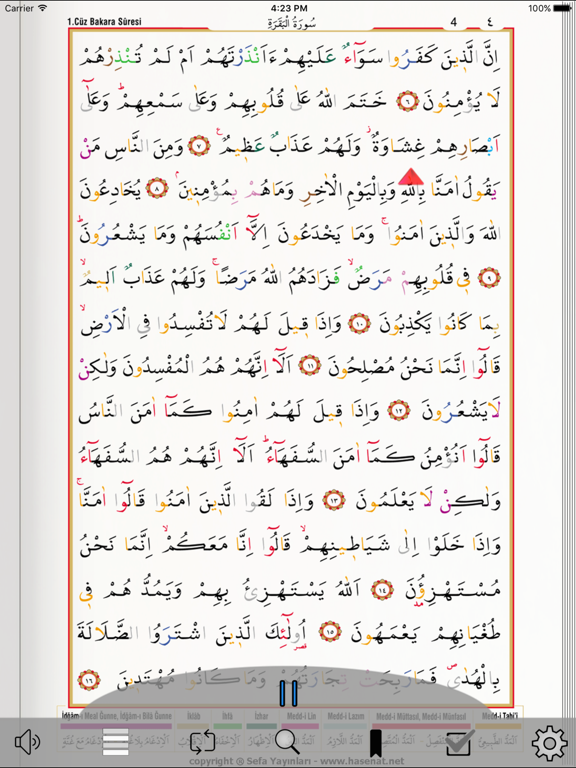 Carrier 4:23 PM 100%
1.Cüz Bakara Sûresi سُورَةُ الْبَقَرَةِ 4 ٤
اِنَّ الَّذ۪ينَ كَفَرُوا سَوَٓاءٌ عَلَيْهِمْ ءَاَنْذَرْتَهُمْ اَمْ لَمْ تُنْذِرْهُمْ
لَا يُؤْمِنُونَ ٦ خَتَمَ اللّٰهُ عَلٰى قُلُوبِهِمْ وَعَلٰى سَمْعِهِمْۜ وَعَلٰٓى
اَبْصَارِهِمْ غِشَاوَةٌۘ وَلَهُمْ عَذَابٌ عَظ۪يمٌ۟ ٧ وَمِنَ النَّاسِ مَنْ
يَقُولُ اٰمَنَّا بِاللّٰهِ وَبِالْيَوْمِ الْاٰخِرِ وَمَاهُمْ بِمُؤْمِن۪ينَۢ ٨ يُخَادِعُونَ
اللّٰهَ وَالَّذ۪ينَ اٰمَنُواۚ وَمَا يَخْدَعُونَ اِلَّٓا اَنْفُسَهُمْ وَمَا يَشْعُرُونَۜ
٩ ف۪ي قُلُوبِهِمْ مَرَضٌۙ فَزَادَهُمُ اللّٰهُ مَرَضًاۚ وَلَهُمْ عَذَابٌ اَل۪يمٌۙ
بِمَا كَانُوا يَكْذِبُونَ ١٠ وَاِذَا ق۪يلَ لَهُمْ لَاتُفْسِدُوا فِي الْاَرْضِۙ
قَالُٓوا اِنَّمَا نَحْنُ مُصْلِحُونَ ١١ اَلَٓا اِنَّهُمْ هُمُ الْمُفْسِدُونَ وَلٰكِنْ
لَايَشْعُرُونَ ١٢ وَاِذَا ق۪يلَ لَهُمْ اٰمِنُوا كَمَٓا اٰمَنَ النَّاسُ
قَالُٓوا اَنُؤْمِنُ كَمَٓا اٰمَنَ السُّفَهَٓاءُۜ اَلَٓا اِنَّهُمْ هُمُ السُّفَهَٓاءُ
وَلٰكِنْ لَا يَعْلَمُونَ ١٣ وَاِذَا لَقُوا الَّذ۪ينَ اٰمَنُوا قَالُٓوا اٰمَنَّاۚ
وَاِذَا خَلَوْا اِلٰى شَيَاط۪ينِهِمْۙ قَالُٓوا اِنَّا مَعَكُمْۙ اِنَّمَا نَحْنُ
مُسْتَهْزِؤُ۫نَ ١٤ اَللّٰهُ يَسْتَهْزِئُ بِهِمْ وَيَمُدُّ هُمْ ف۪ي
طُغْيَانِهِمْ يَعْمَهُونَ ١٥ اُو۬لٰٓئِكَ الَّذ۪ينَ اشْتَرَوُا الضَّلَالَةَ
بِالْهُدٰىۖ فَمَارَبِحَتْ تِجَارَتُهُمْ وَمَاكَانُوا مُهْتَد۪ينَ ١٦
İdğâm-ı Meal Ğunne, İdğâm-ı Bilâ Ğunne İklâb İhfâ İzhar Medd-i Lin Medd-i Lazım Medd-i Muttasıl, Medd-i Munfasıl Medd-i Tabi'i
copyright @ Sefa Yayınları - www.hasenat.net